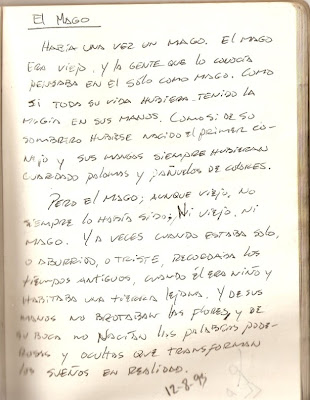 El Mago
Había una vez un mago. El mago
era viejo, y la gente que lo conocía
pensaba en el sólo como mago. Como
si toda su vida hubiera tenido la
magia en sus manos. Como si de su
sombrero hubiese nacido el primer co-
nejo y sus mangas siempre hubieran
guardado palomas y pañuelos de colores.
Pero el mago, aunque viejo, no
siempre lo había sido; Ni viejo, ni
mago. Y a veces cuando estaba solo,
o aburrido, o triste, recordaba los
tiempos antiguos, cuando él era niño y
habitaba una tierra lejana. Y de sus
manos no brotaban las flores, y de
su boca no nacían las palabras pode-
rosas y ocultas que transforman
los sueños en realidad.
12-8-95